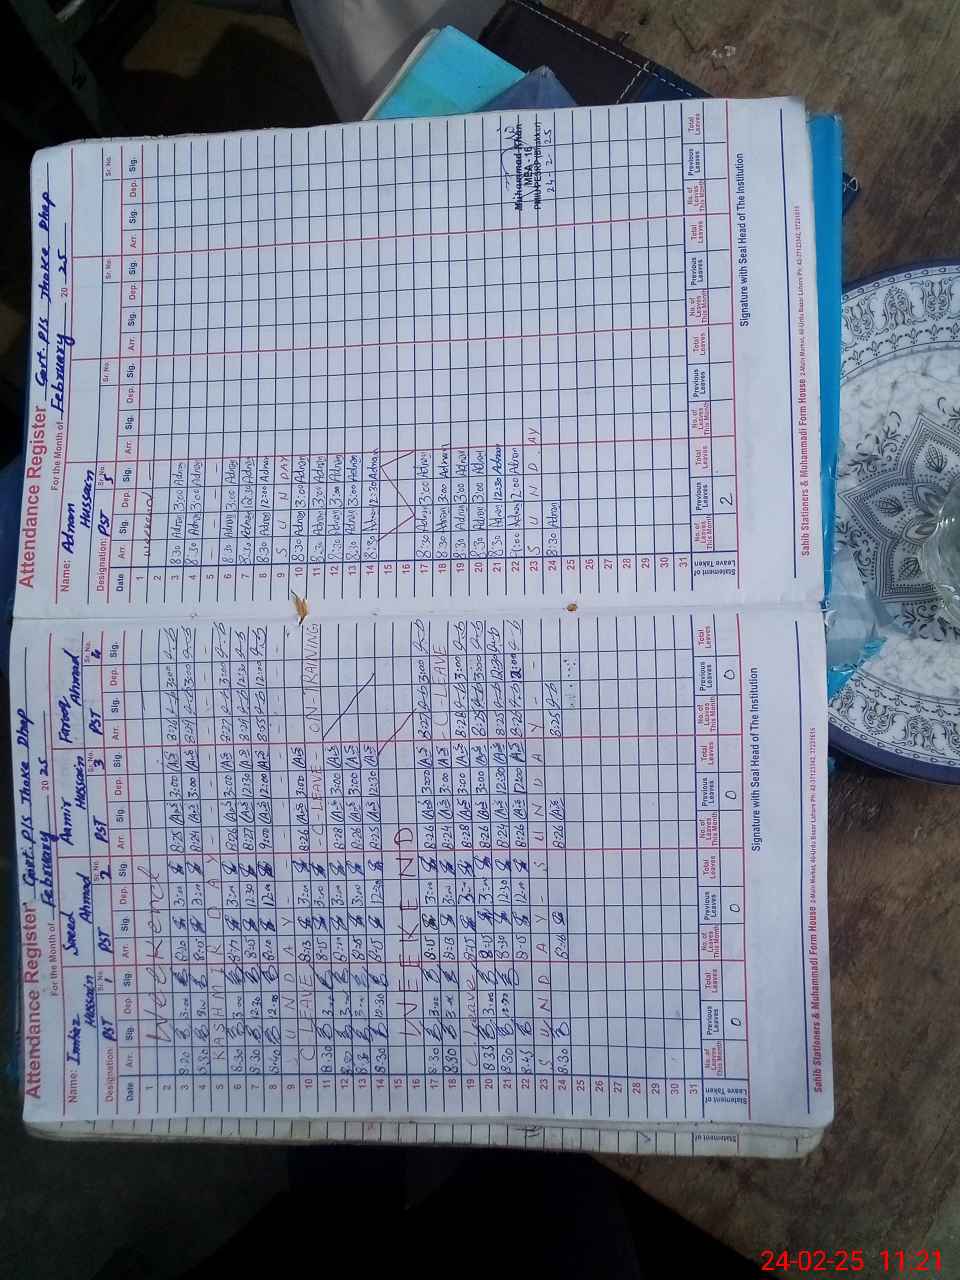 Attendance Register Govt. P/S Thake Dhap
For the Month of February 20 25
Name: Imtiaz Hussain
Saeed Ahmad
Aamir Hussain
Farooq Ahmad
Designation: PST
PST
PST
PST
Sr. No. 2
Sr. No. 3
Sr. No. 4
Date Arr. Sig. Dep. Sig. Arr. Sig. Dep. Sig. Arr. Sig. Dep. Sig. Arr. Sig. Dep. Sig.
1 Weekend
2
3 8:20 3:00 8:20 3:00 8:25 3:00 8:26 3:00
4 8:30 8:15 3:00 8:24 3:00 8:29 3:00
5 KASHMIR DAY - - -
6 8:30 3:00 3:00 8:26 3:00 8:27 3:00
7 8:30 12:30 8:25 12:30 8:27 12:30 8:29 12:30
8 8:40 12:00 8:20 12:00 9:00 12:00 8:55 12:00
9 SUNDAY - - -
10 C LEAVE 8:25 3:00 8:26 3:00 ON TRAINING
11 8:30 8:15 3:00 - C-LEAVE -
12 3:00 8:28 3:00
13 3:00 8:26 3:00
14 8:30 12:30 8:25 12:30
15 WEEKEND
16
17 8:30 3:00 8:15 3:00 8:26 3:00 8:27 3:00
18 8:30 3:00 8:24 3:00 - C-LEAVE
19 C Leave 8:15 8:28 3:00 8:28 3:00
20 8:35 3:00 8:15 3:00 8:26 3:00 8:25 3:00
21 8:30 8:30 12:30 8:24 12:30 12:30
22 8:45 8:15 12:00 8:26 12:00 8:26 12:00
23 SUNDAY - SUNDAY - -
24 8:30 8:26 8:25
25
26
27
28
29
30
31
Statement of Leave Taken No. of Leaves This Month Previous Leaves Total Leaves No. of Leaves This Month Previous Leaves Total Leaves No. of Leaves This Month Previous Leaves Total Leaves No. of Leaves This Month Previous Leaves Total Leaves
0 0 0 0
Signature with Seal Head of The Institution
Sahib Stationers & Muhammadi Form House 2-Main Market, 40-Urdu Bazar Lahore Ph: 42-37123342, 37231615
Attendance Register Govt. P/S Thake Dhap
For the Month of February 20 25
Name: Adnan Hussain
Designation: PST
Sr. No. 5
Sr. No.
Sr. No.
Sr. No.
Date Arr. Sig. Dep. Sig. Arr. Sig. Dep. Sig. Arr. Sig. Dep. Sig. Arr. Sig. Dep. Sig.
1 weekend
2
3 8:30 Adnan 3:00 Adnan
4 8:30 Adnan 3:00 Adnan
5 - - - -
6 8:30 Adnan 3:00 Adnan
7 8:30 Adnan 12:30 Adnan
8 8:30 Adnan 12:00 Adnan
9 SUNDAY
10 8:30 Adnan 3:00 Adnan
11 8:30 Adnan 3:00 Adnan
12 8:30 Adnan 3:00 Adnan
13 8:30 Adnan 3:00 Adnan
14 8:30 Adnan 12:30 Adnan
15
16
17 8:30 Adnan 3:00 Adnan
18 8:30 Adnan 3:00 Adnan
19 8:30 Adnan 3:00 Adnan
20 8:30 Adnan 3:00 Adnan
21 8:30 Adnan 12:30 Adnan
22 9:00 Adnan 2:00 Adnan
23 SUNDAY
24 8:30 Adnan
25
26
27
28
29
30
31
Muhammad Khan
MEA - 16
PMIU-PESRP (Bhakkar)
24-2-25
Statement of Leave Taken No. of Leaves This Month Previous Leaves Total Leaves No. of Leaves This Month Previous Leaves Total Leaves No. of Leaves This Month Previous Leaves Total Leaves No. of Leaves This Month Previous Leaves Total Leaves
2
Signature with Seal Head of The Institution
Sahib Stationers & Muhammadi Form House 2-Main Market, 40-Urdu Bazar Lahore Ph: 42-37123342, 37231615
Statement of
24-02-25 11:21